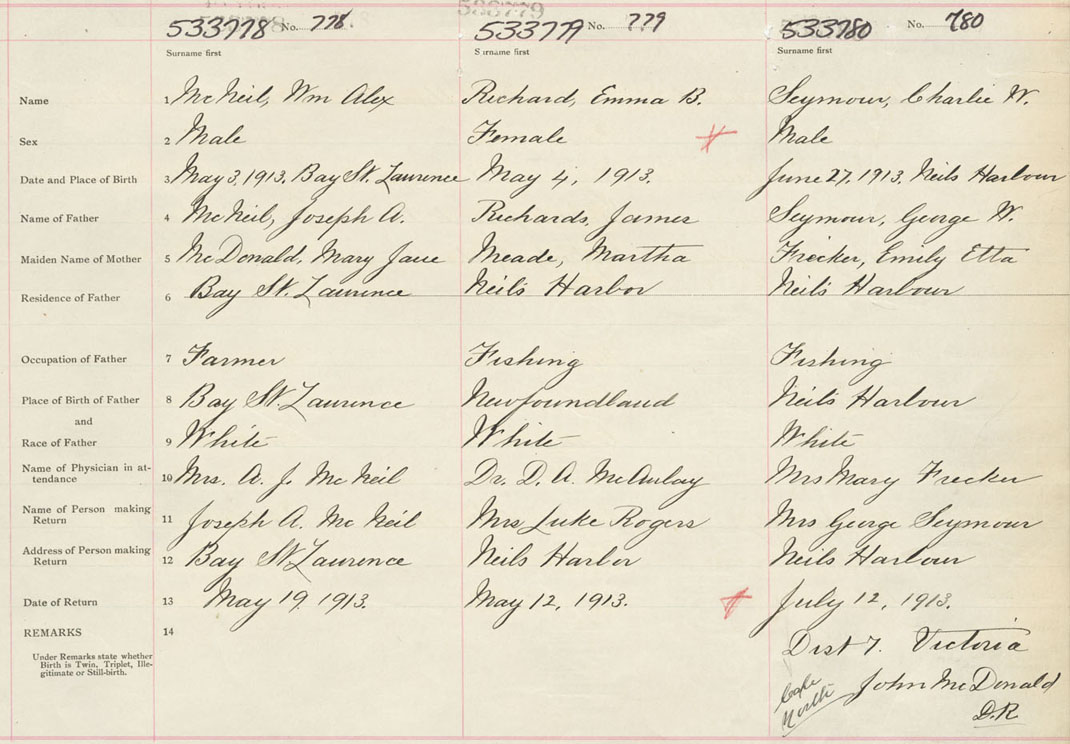 533778 No. 778
533779 No. 779
533780 No. 780
Surname first
Surname first
Surname first
Name 1 McNeil, Wm Alex Richard, Emma B. Seymour, Charlie W.
Sex 2 Male Female Male
Date and Place of Birth 3 May 3, 1913, Bay St. Laurence May 4, 1913. June 27, 1913, Neils Harbour
Name of Father 4 McNeil, Joseph A. Richards, James Seymour, George W.
Maiden Name of Mother 5 McDonald, Mary Jane Meade, Martha Frecker, Emily Etta
Residence of Father 6 Bay St. Laurence Neil's Harbor Neil's Harbour
Occupation of Father 7 Farmer Fishing Fishing
Place of Birth of Father 8 Bay St. Laurence Newfoundland Neil's Harbour
and
Race of Father 9 White White White
Name of Physician in at-
tendance 10 Mrs. A. J. McNeil Dr. D. A. McAulay Mrs Mary Frecker
Name of Person making
Return 11 Joseph A. McNeil Mrs Luke Rogers Mrs George Seymour
Address of Person making
Return 12 Bay St Laurence Neils Harbor Neils Harbour
Date of Return 13 May 19, 1913. May 12, 1913. July 12, 1913.
REMARKS 14
Under Remarks state whether
Birth is Twin, Triplet, Ille-
gitimate or Still-birth.
Dist 7. Victoria
Cape
North
John McDonald
D.R